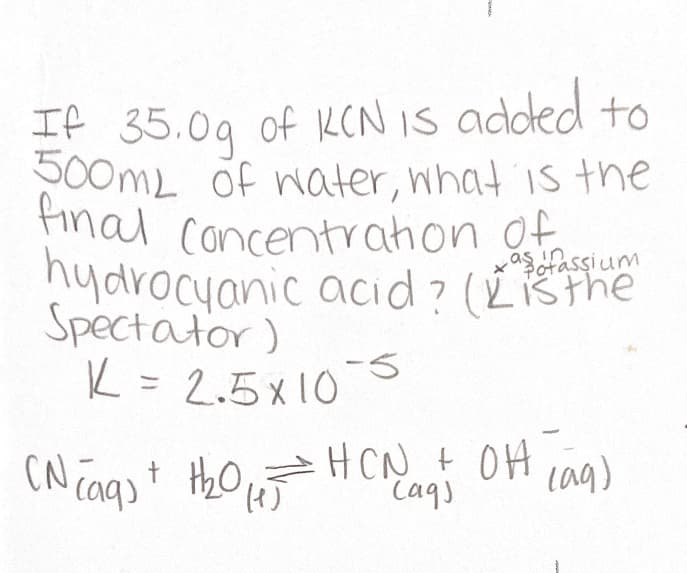 If 35.0g of KCN is added to
500mL of water, what is the
final concentration of
hydrocyanic acid? (K is the
*as in potassium
Spectator)
K = 2.5x10⁻⁵
CN⁻(aq) + H₂O(l) ⇌ HCN(aq) + OH⁻(aq)